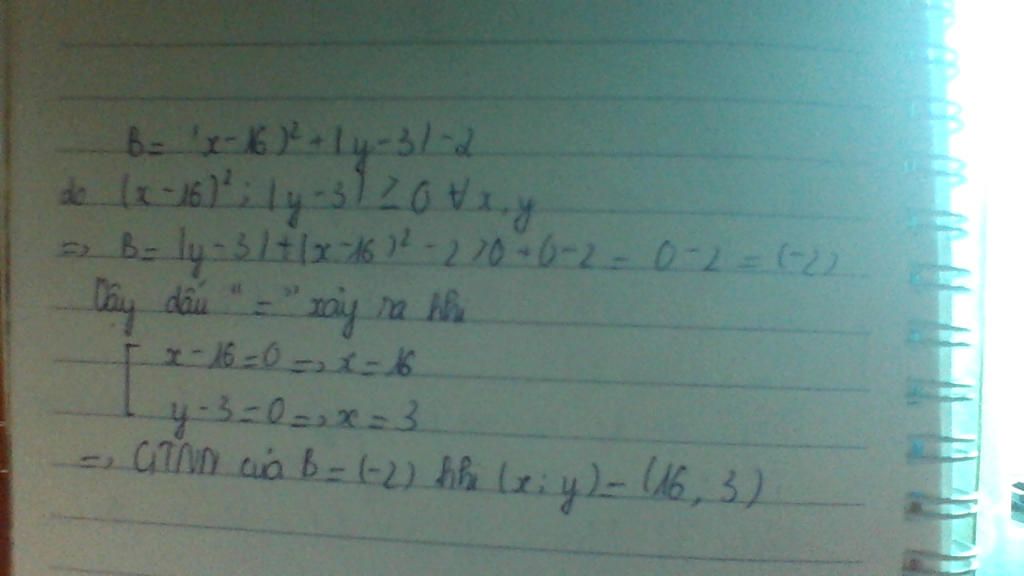 B = (x-16)² + |y-3| -2
do (x-16)²; |y-3| ≥ 0 ∀ x, y
=> B = |y-3| + (x-16)² - 2 ≥ 0 + 0 - 2 = 0 - 2 = (-2)
Vậy dấu "=" xảy ra khi
[ x - 16 = 0 => x = 16
y - 3 = 0 => x = 3
=> GTNN của B = (-2) khi (x; y) = (16, 3)